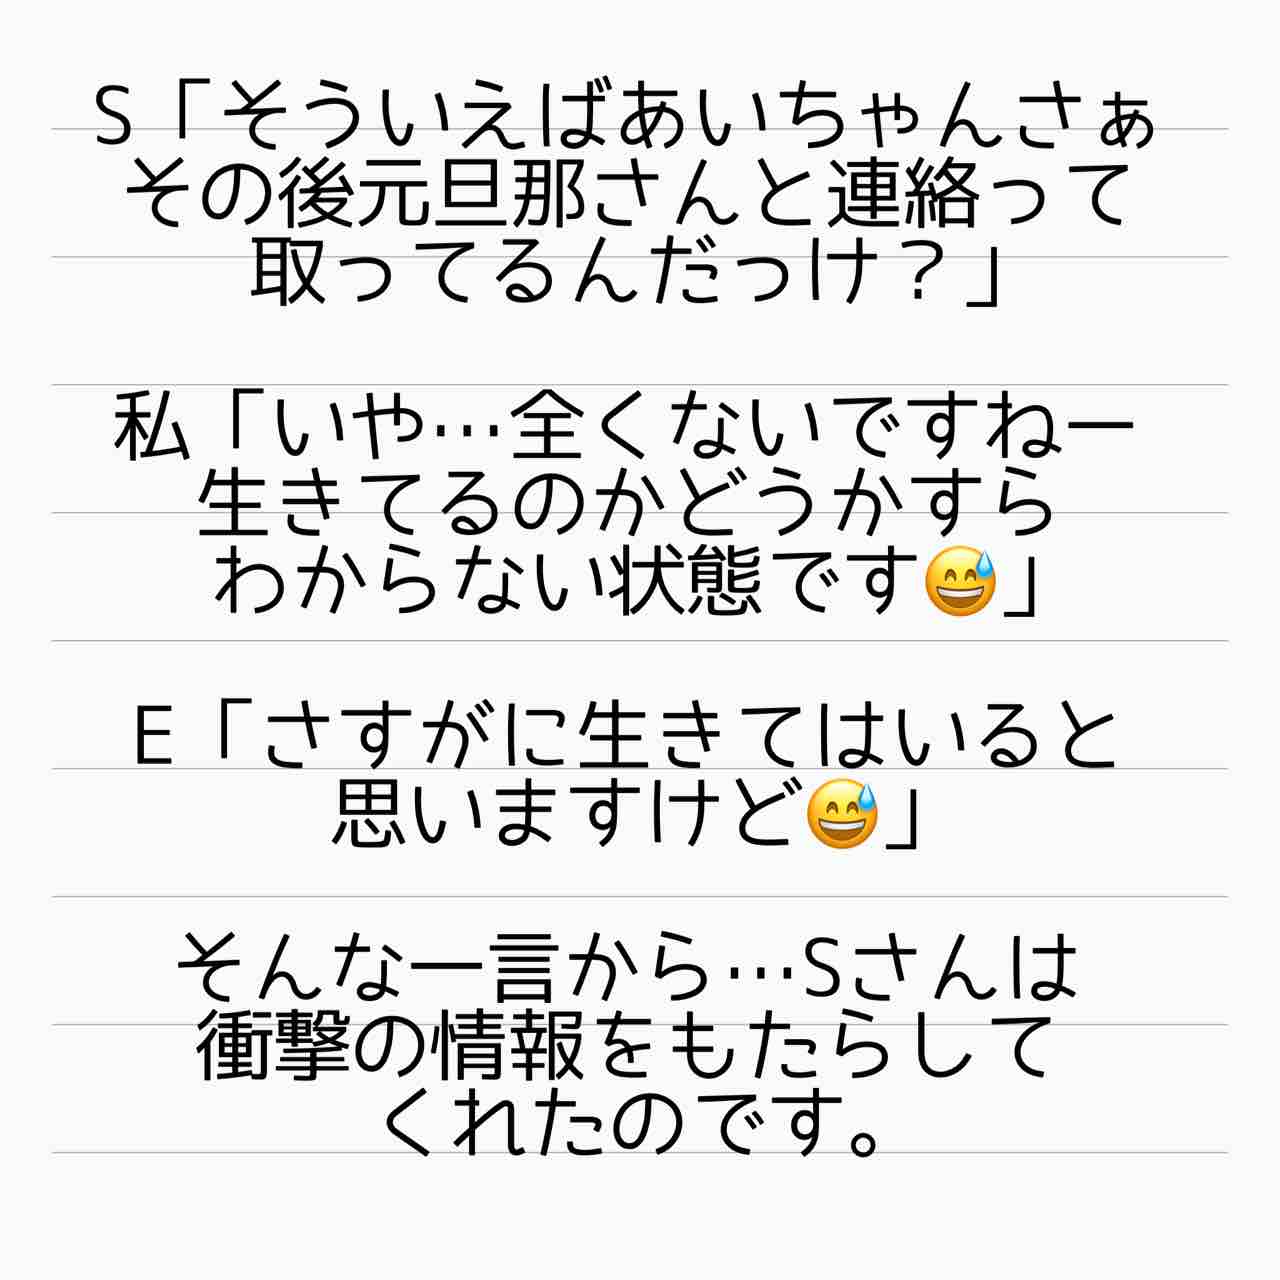 S「そういえばあいちゃんさぁ
その後元旦那さんと連絡って
取ってるんだっけ？」
私「いや…全くないですねー
生きてるのかどうかすら
わからない状態です😅」
E「さすがに生きてはいると
思いますけど😅」
そんな一言から…Sさんは
衝撃の情報をもたらして
くれたのです。